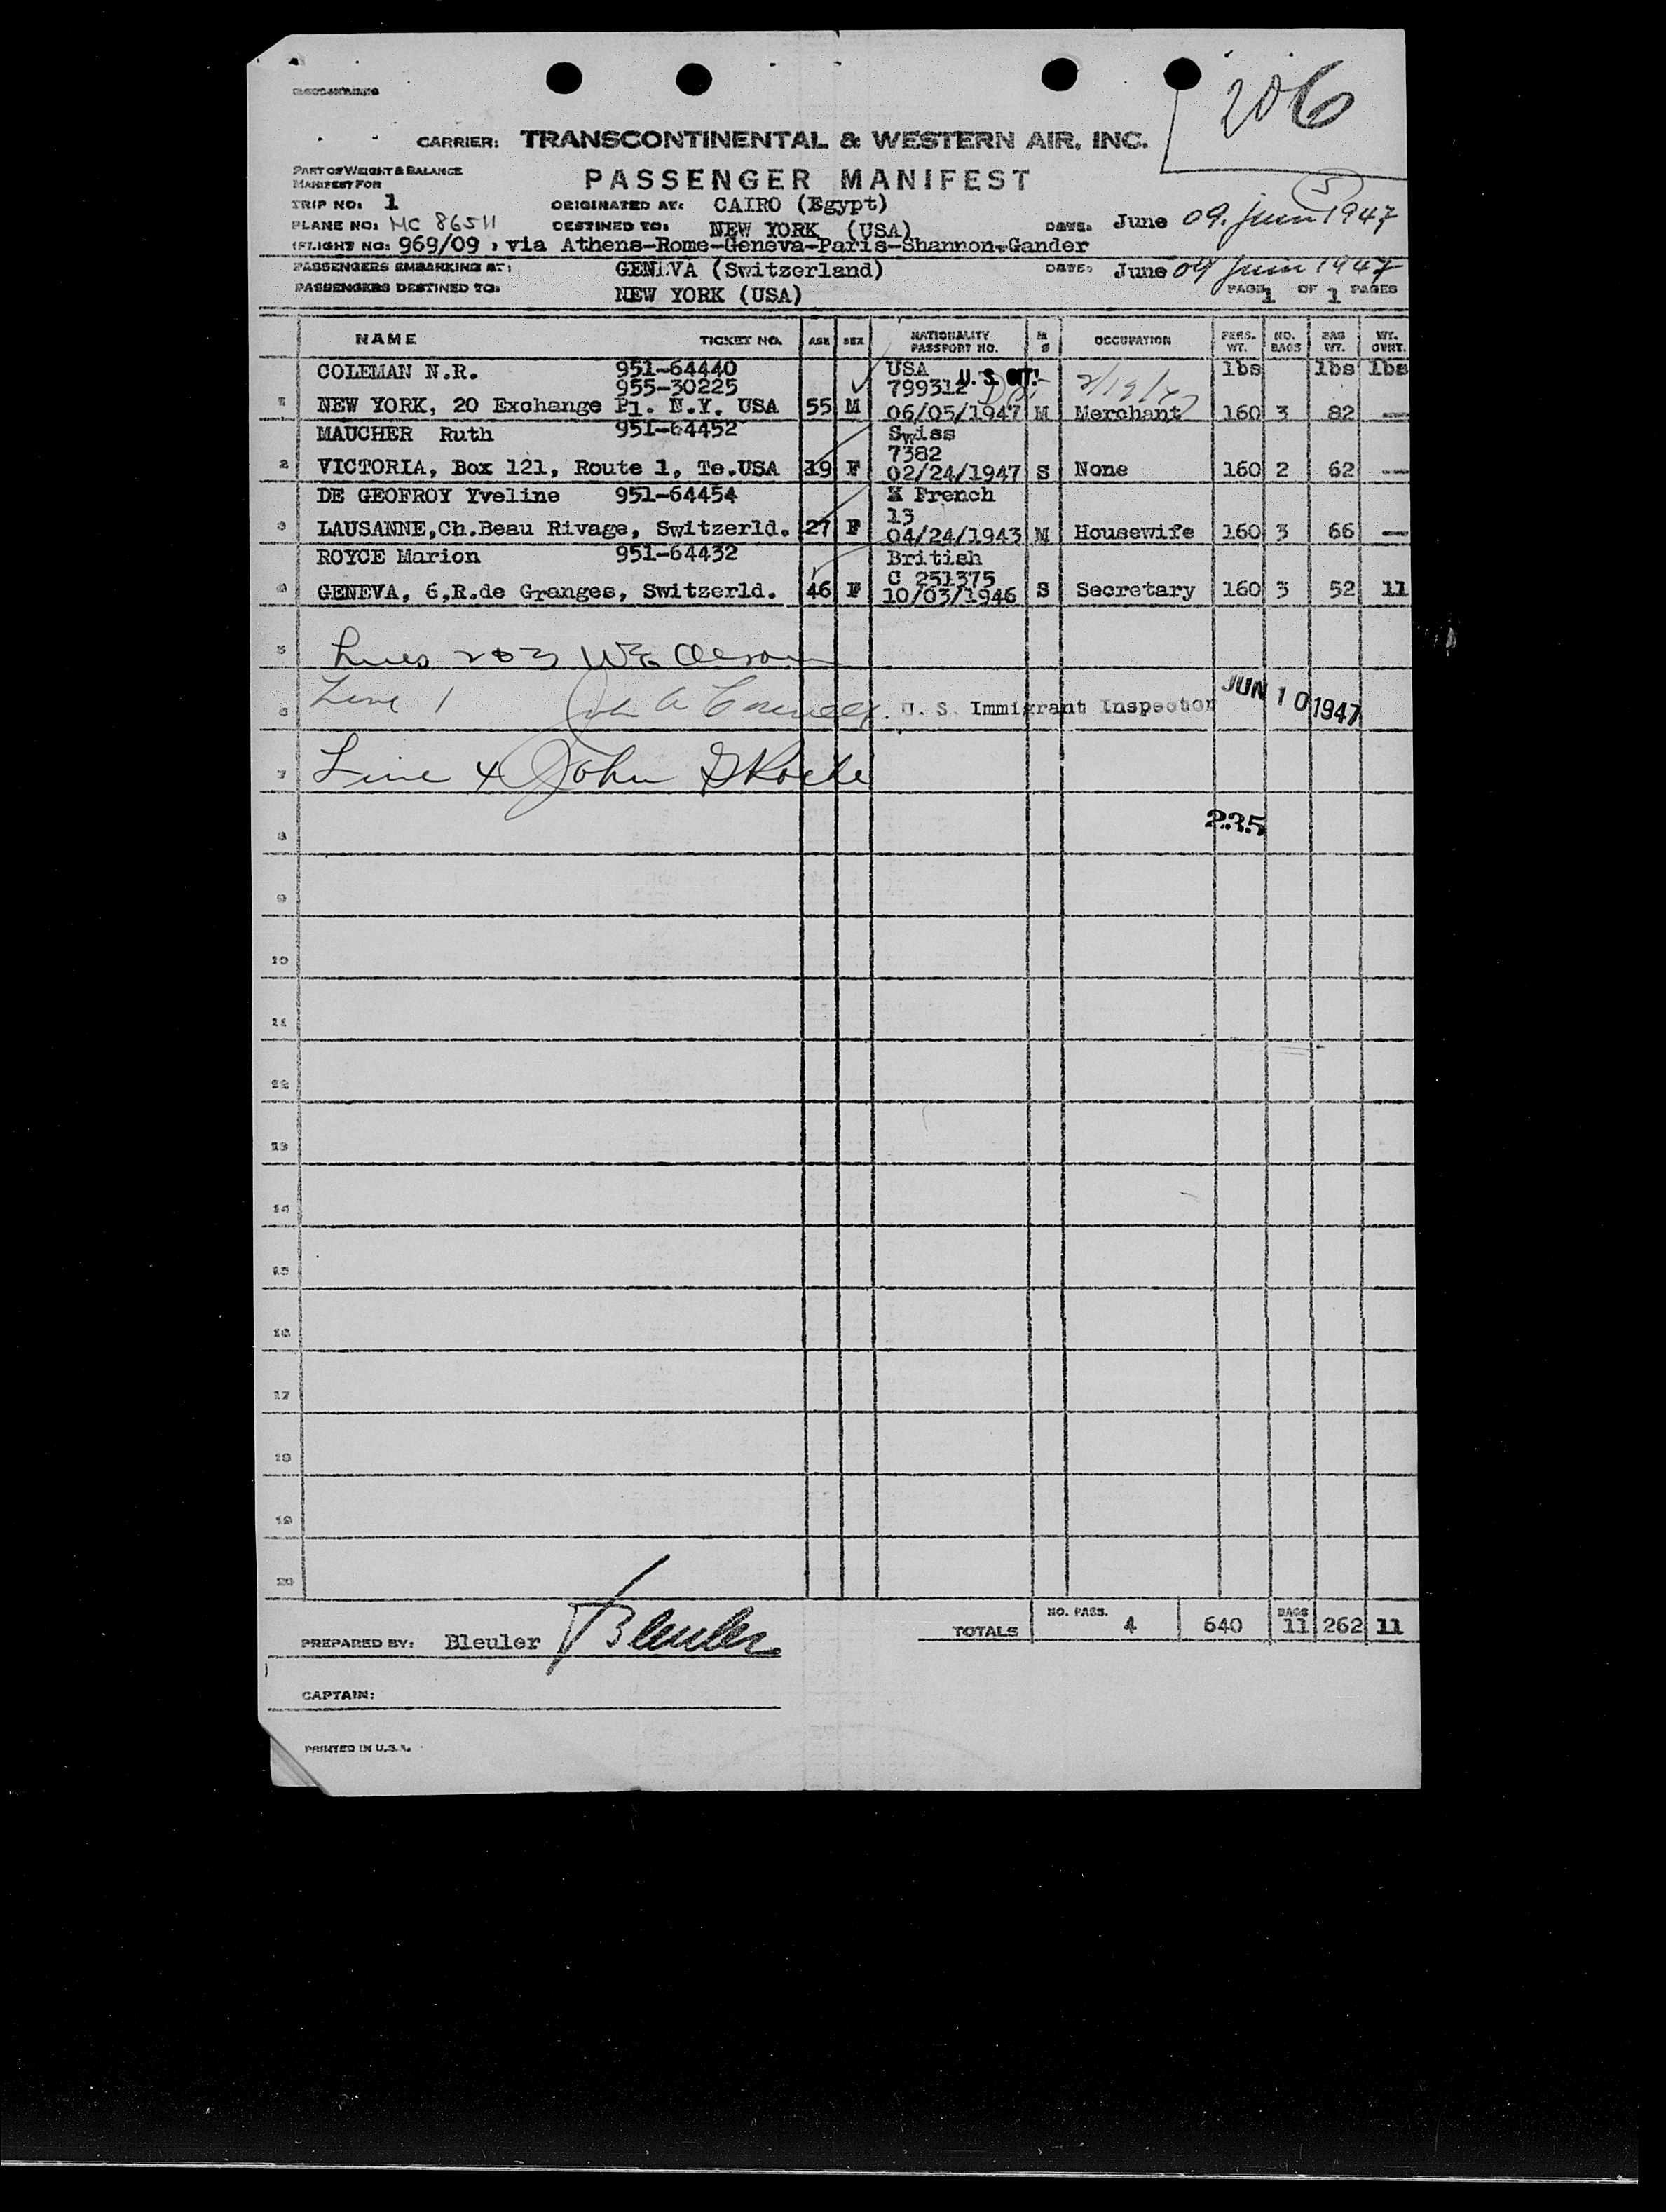 206
CARRIER: TRANSCONTINENTAL & WESTERN AIR, INC.
PART OF WEIGHT & BALANCE
MANIFEST FOR
PASSENGER MANIFEST
5
TRIP NO: 1 ORIGINATED AT: CAIRO (Egypt)
PLANE NO: NC 86511 DESTINED TO: NEW YORK (USA) DATE: June 09. Juin 1947
(FLIGHT NO: 969/09 , via Athens-Rome-Geneva-Paris-Shannon-Gander
PASSENGERS EMBARKING AT: GENEVA (Switzerland) DATE: June 09 Juin 1947
PASSENGERS DESTINED TO: NEW YORK (USA) PAGE 1 OF 1 PAGES
NAME TICKET NO. AGE SEX NATIONALITY PASSPORT NO. M S OCCUPATION PERS. WT. NO. BAGS BAG WT. WT. OVHT.
COLEMAN N.R. 951-64440 USA lbs lbs lbs
955-30225 799312 U. S. CIT! 2/19/47
1 NEW YORK, 20 Exchange Pl. N.Y. USA 55 M 06/05/1947 M Merchant 160 3 82 —
MAUCHER Ruth 951-64452 Swiss
7382
2 VICTORIA, Box 121, Route 1, Te.USA 19 F 02/24/1947 S None 160 2 62 —
DE GEOFROY Yveline 951-64454 X French
13
3 LAUSANNE,Ch.Beau Rivage, Switzerld. 27 F 04/24/1943 M Housewife 160 3 66 —
ROYCE Marion 951-64432 British
C 251375
4 GENEVA, 6,R.de Granges, Switzerld. 46 F 10/03/1946 S Secretary 160 3 52 11
5 Lines 2 & 3 W E Olson
6 Line 1 John A U. S. Immigrant Inspector JUN 10 1947
7 Line 4 John
8 235
9
10
11
12
13
14
15
16
17
18
19
20
PREPARED BY: Bleuler Bleuler TOTALS NO. PASS. 4 640 BAGS 11 262 11
CAPTAIN:
PRINTED IN U.S.A.